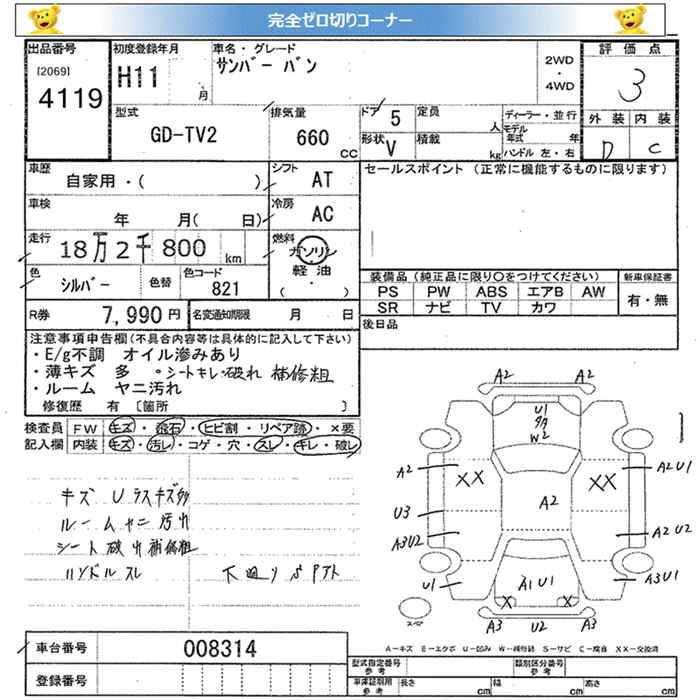 完全ゼロ切りコーナー
出品番号 初度登録年月 車名・グレード 評価点
[2069] H11 月 サンバー バン 2WD・4WD 3
4119
型式 排気量 ドア 5 定員 人 ディーラー・並行 外装 内装
GD-TV2 660 CC 形状 V 積載 kg モデル年式 年 D C
ハンドル 左・右
車歴 自家用・( ) シフト AT セールスポイント (正常に機能するものに限ります)
車検 年 月( 日) 冷房 AC
走行 18万2千800 km 燃料 ガソリン
軽油
( ・ )
色 シルバー 色替 色コード 821
装備品(純正品に限り○をつけてください) 新車保証書
PS PW ABS エアB AW 有・無
SR ナビ TV カワ
R券 7,990円 名変通知期限 月 日
後日品
注意事項申告欄(不具合内容等は具体的に記入して下さい)
・E/g不調 オイル滲みあり
・薄キズ 多 ・シートキレ・破れ 補修粗
・ルーム ヤニ汚れ
修復歴 有 [箇所 ]
検査員 FW キズ・飛石・ヒビ割・リペア跡・×要
記入欄 内装 キズ・汚レ・コゲ・穴・スレ・キレ・破レ
キズ U ラスキズ多
ルームヤニ汚れ
シート破れ補修粗
ハンドルスレ 下廻りSアト
A2 A2
U1
W2
A2 XX XX A2U1
A2
U3
A3U2 A2 U2
U1 A1 U1 A3U1
X X
スペア
A3 U2 A3
A-キズ E-エクボ U-凹み W-補修跡 S-サビ C-腐食 XX-交換済
車台番号 008314
登録番号
型式指定番号 参考 類別区分番号 参考
車庫証明用 参考 長さ cm 幅 cm 高さ cm